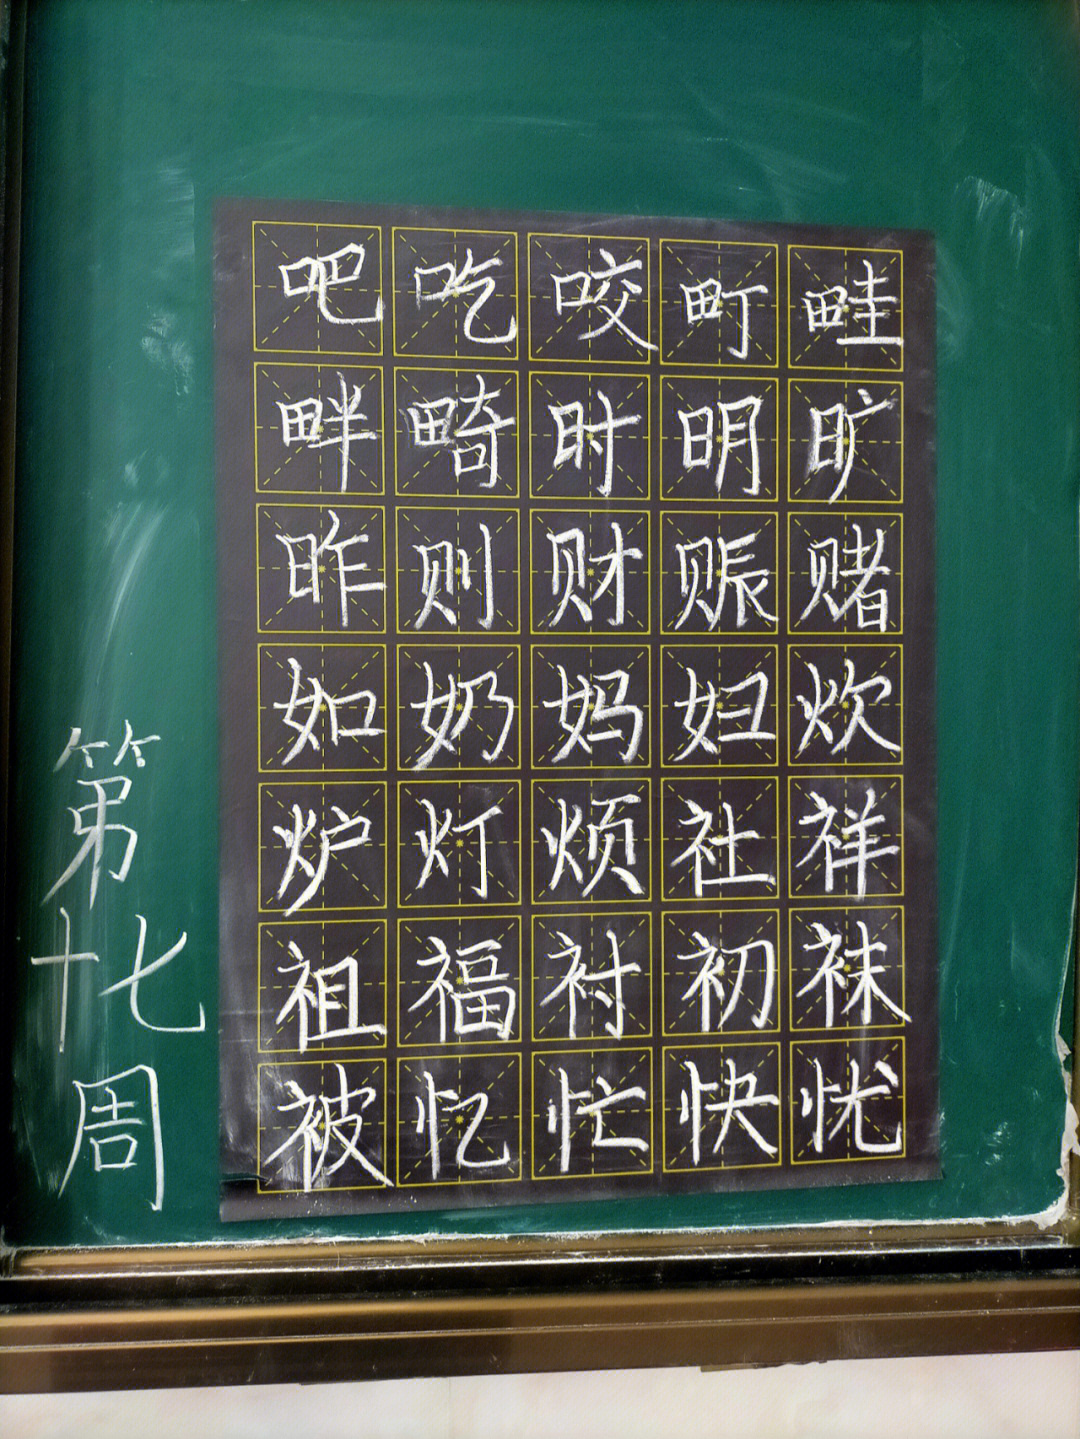 吧吃咬町畦
畔畸时明旷
昨则财赈赌
如奶妈妇炊
炉灯烦社祥
祖福衬初袜
被忆忙快忧
第
十七
周